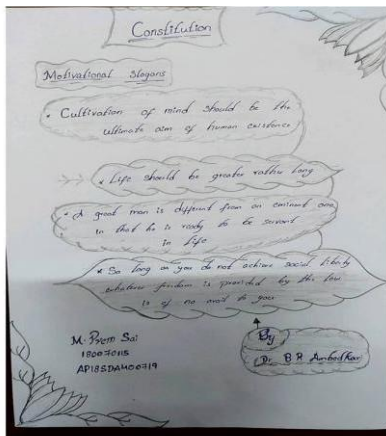 Constitution
Motivational Slogans
* Cultivation of mind should be the
ultimate aim of human existence
* Life should be greater rather long
* A great man is different from an eminent one
in that he is ready to be servant
in life
* So long as you do not achieve social liberty
whatever freedom is provided by the law
is of no avail to you
By
Dr. B R Ambedkar
M. Prem Sai
180070115